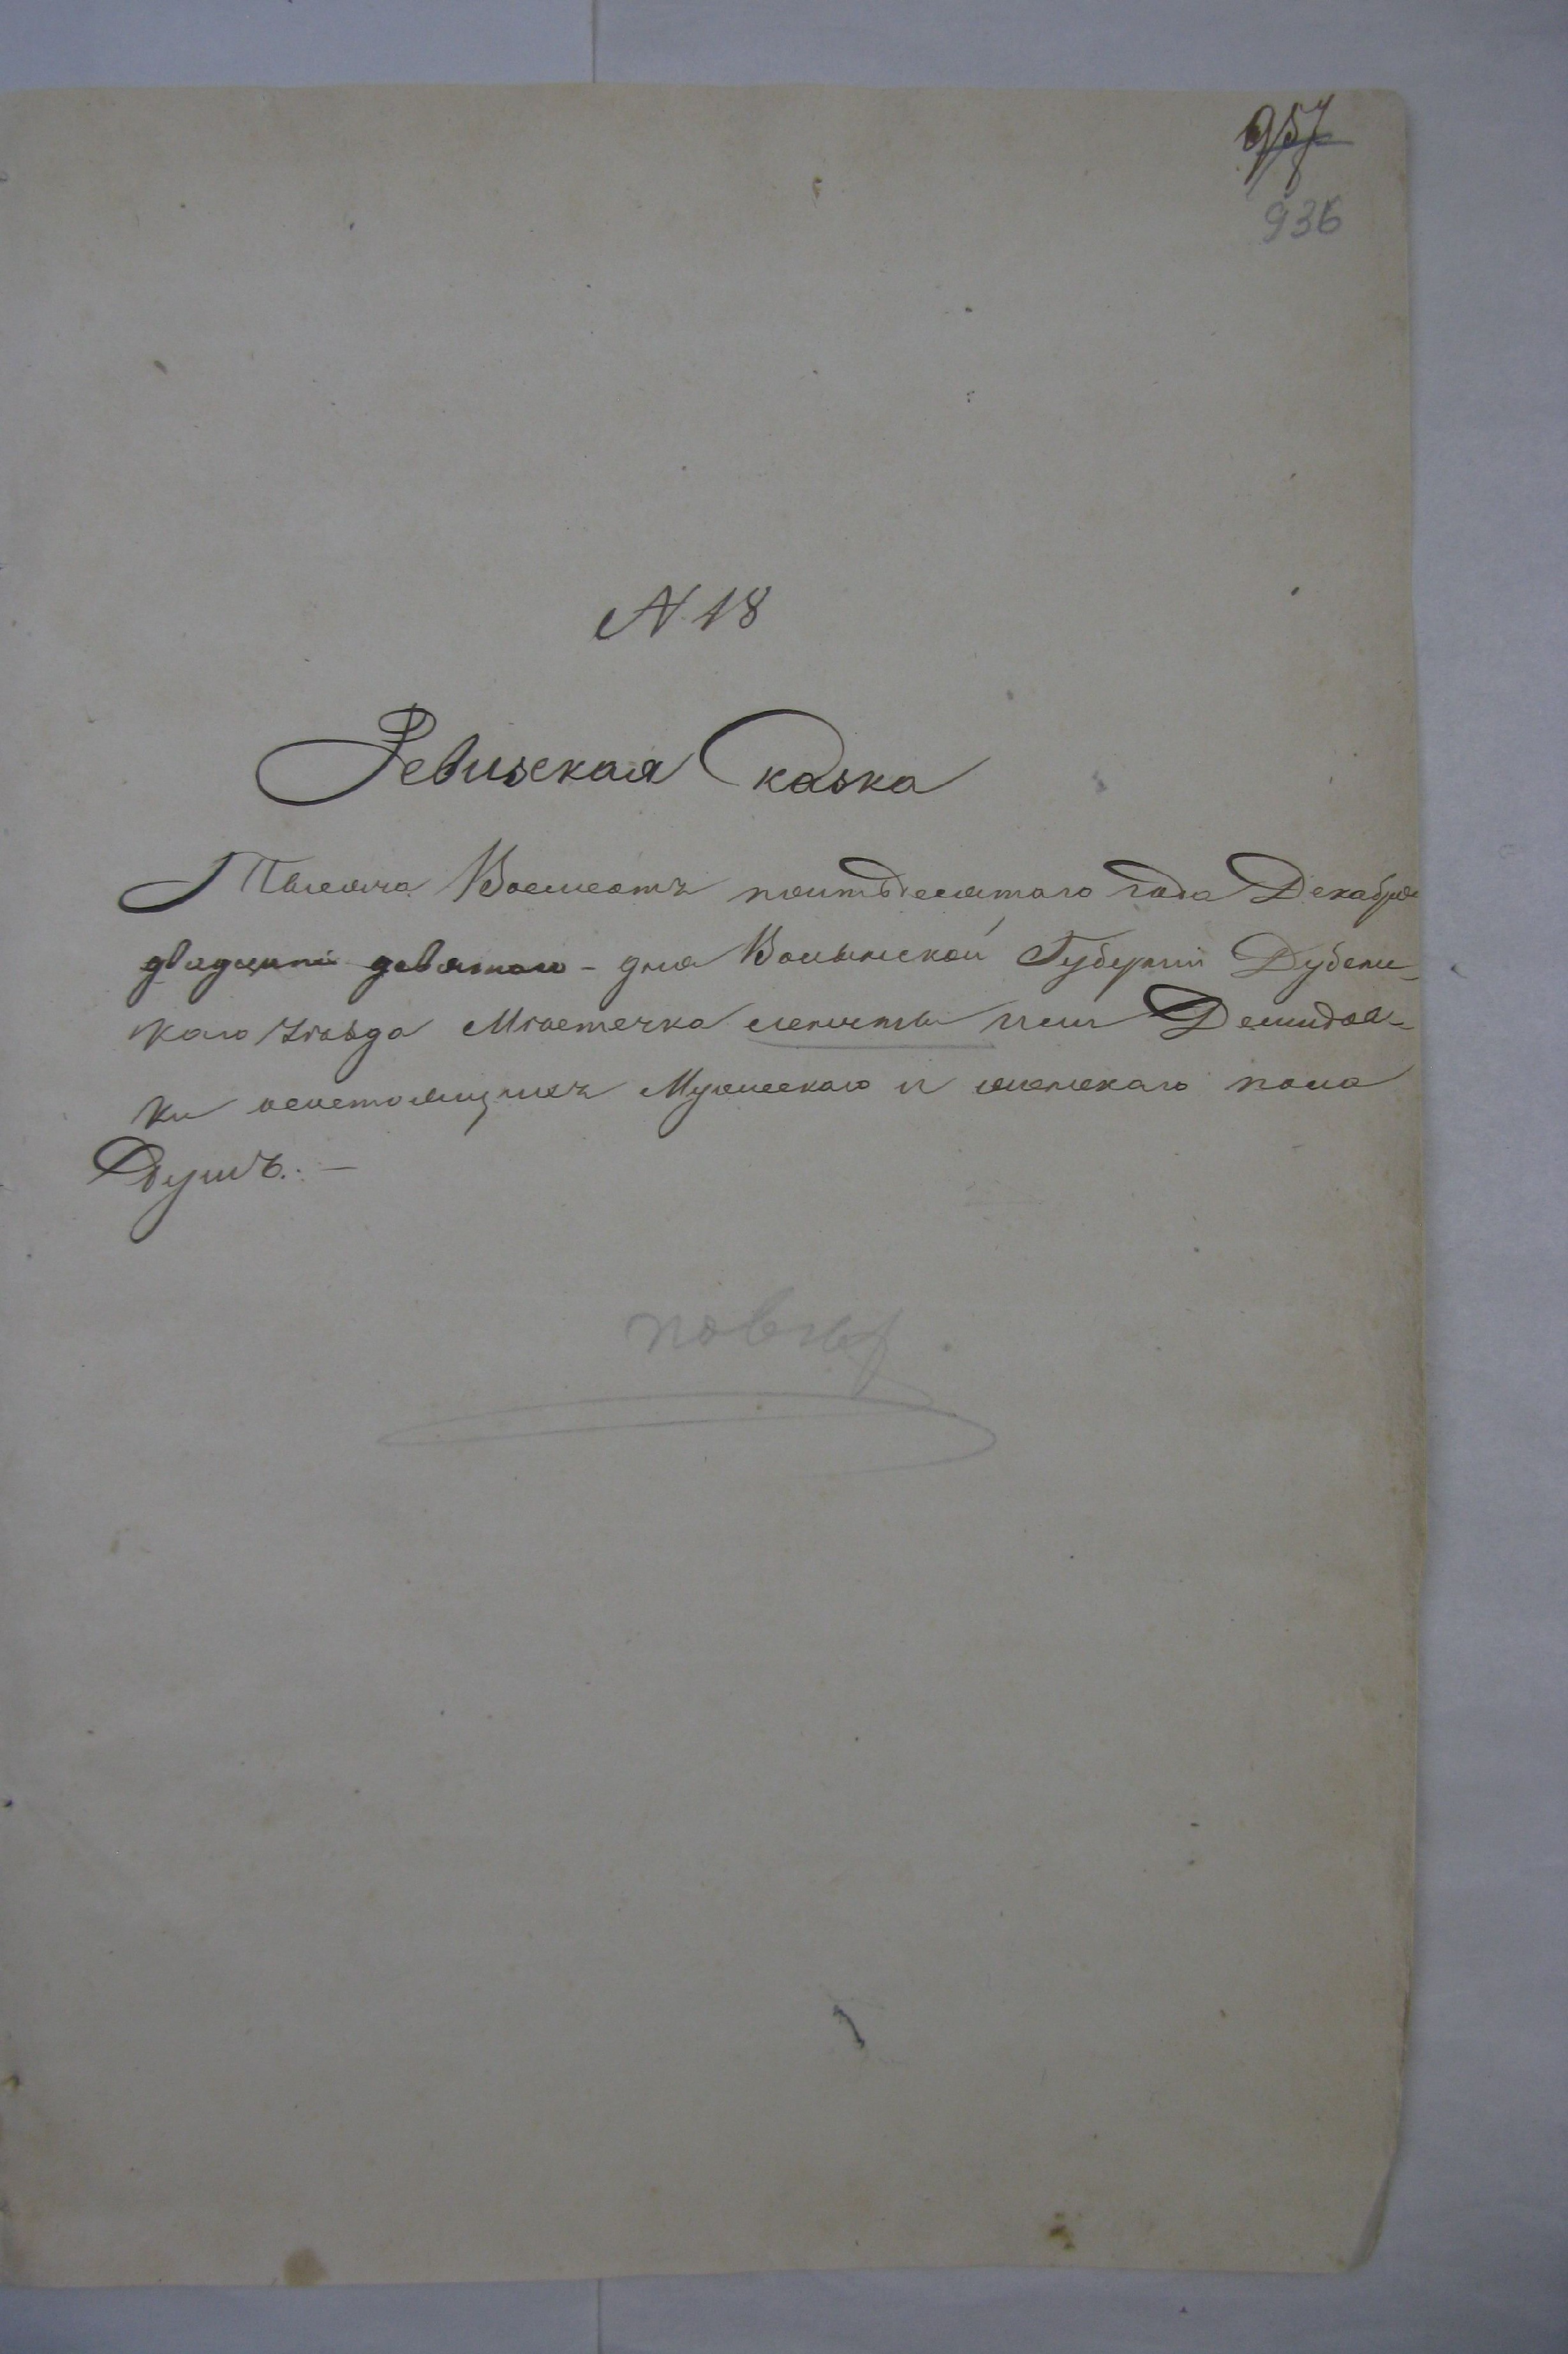 957
936
N 18
Ревизская Сказка
Тысяча Восемсотъ пятдесятаго года Декабря
двадцать девятого - дня Волынской Губерніи Дубенс-
каго Уѣзда Мѣстечка или Демидов-
ки состоящихъ Мужескаго и женскаго пола
Душъ. —
повѣр.